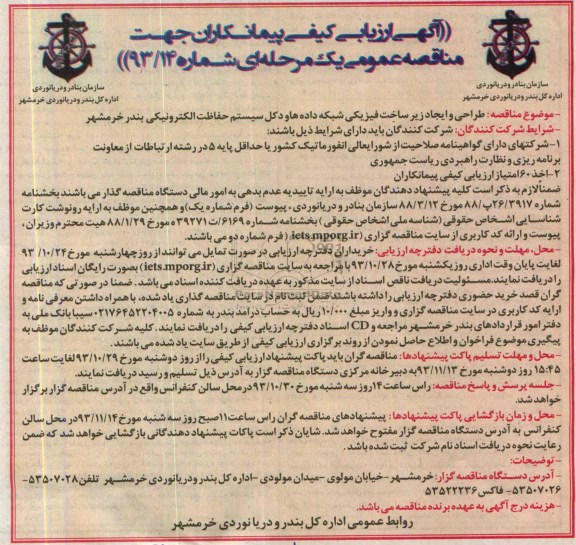 ((آگهی ارزیابی کیفی پیمانکاران جهت
مناقصه عمومی یک مرحله‌ای شماره ۹۳/۱۴))
سازمان بنادر و دریانوردی
اداره کل بندر و دریانوردی خرمشهر
سازمان بنادر و دریانوردی
اداره کل بندر و دریانوردی خرمشهر
-موضوع مناقصه: طراحی و ایجاد زیر ساخت فیزیکی شبکه داده ها و دکل سیستم حفاظت الکترونیکی بندر خرمشهر
-شرایط شرکت کنندگان: شرکت کنندگان باید دارای شرایط ذیل باشند:
۱-شرکتهای دارای گواهینامه صلاحیت از شورایعالی انفورماتیک کشور یا حداقل پایه ۵ در رشته ارتباطات از معاونت
برنامه ریزی و نظارت راهبردی ریاست جمهوری
۲-اخذ ۶۰ امتیاز ارزیابی کیفی پیمانکاران
ضمنا لازم به ذکر است کلیه پیشنهاد دهندگان موظف به ارایه تاییدیه عدم بدهی به امور مالی دستگاه مناقصه گذار می باشند بخشنامه
شماره ۲۶/۳۹۱۷پ/۸۸ مورخ ۸۸/۳/۱۲ سازمان بنادر و دریانوردی ، پیوست (فرم شماره یک) و همچنین موظف به ارایه رونوشت کارت
شناسایی اشخاص حقوقی (شناسه ملی اشخاص حقوقی) بخشنامه شماره ۶۱۶۹/ت۳۹۲۷۱ه مورخ ۸۸/۱/۲۹ هیت محترم وزیران ،
پیوست و ارائه کد کاربری از سایت مناقصه گزاری (iets.mporg.ir) (فرم شماره دو می باشند.
-محل، مهلت و نحوه دریافت دفترچه ارزیابی: خریداران دفترچه ارزیابی در صورت تمایل می توانند از روز چهارشنبه مورخ ۹۳/۱۰/۲۴
لغایت پایان وقت اداری روز یکشنبه مورخ ۹۳/۱۰/۲۸ با مراجعه به سایت مناقصه گزاری (iets.mporg.ir) بصورت رایگان اسناد ارزیابی
را دریافت نمایند.مسئولیت دریافت ناقص اسناد از سایت مذکور به عهده دریافت کننده اسناد می باشد. ضمنا در صورتی که مناقصه
گران قصد خرید حضوری دفترچه ارزیابی را داشته باشند ضمن ثبت نام در سایت مناقصه گذاری یاد شده، با همراه داشتن معرفی نامه و
ارایه کد کاربری در سایت مناقصه گزاری و واریز مبلغ ۱۰/۰۰۰ ریال به حساب درآمد بندر به شماره ۰۲۱۷۶۴۵۲۲۰۴۰۰۵ سیبا بانک ملی به
دفتر امور قراردادهای بندر خرمشهر مراجعه و CD اسناد دفترچه ارزیابی کیفی را دریافت نمایند. کلیه شرکت کنندگان موظف به
پیگیری موضوع فراخوان و اطلاع حاصل نمودن از روند برگزاری ارزیابی کیفی از طریق سایت یاد شده می باشند.
-محل و مهلت تسلیم پاکت پیشنهادها: مناقصه گران باید پاکت پیشنهاد ارزیابی کیفی را از روز دوشنبه مورخ ۹۳/۱۰/۲۹ لغایت ساعت
۱۵:۴۵ روز دوشنبه مورخ ۹۳/۱۱/۱۳ به دبیرخانه مرکزی دستگاه مناقصه گزار به آدرس ذیل تسلیم و رسید دریافت نمایند.
-جلسه پرسش و پاسخ مناقصه: راس ساعت ۱۴ روز سه شنبه مورخ ۹۳/۱۰/۳۰ در محل سالن کنفرانس واقع در آدرس مناقصه گزار برگزار
خواهد شد.
-محل و زمان بازگشایی پاکت پیشنهادها: پیشنهادهای مناقصه گران راس ساعت ۱۱ صبح روز سه شنبه مورخ ۹۳/۱۱/۱۴ در محل سالن
کنفرانس به آدرس دستگاه مناقصه گزار مفتوح خواهد شد. شایان ذکر است پاکات پیشنهاد دهندگانی بازگشایی خواهد شد که ضمن
رعایت نحوه دریافت اسناد نام شرکت ثبت شده باشد.
-توضیحات:
-آدرس دستگاه مناقصه گزار: خرمشهر -خیابان مولوی -میدان مولودی -اداره کل بندر و دریانوردی خرمشهر تلفن ۵۳۵۰۷۰۲۸-
۵۳۵۰۷۰۲۶- فاکس ۵۳۵۲۲۲۳۶
-هزینه درج آگهی به عهده برنده مناقصه می باشد.
روابط عمومی اداره کل بندر و دریا نوردی خرمشهر